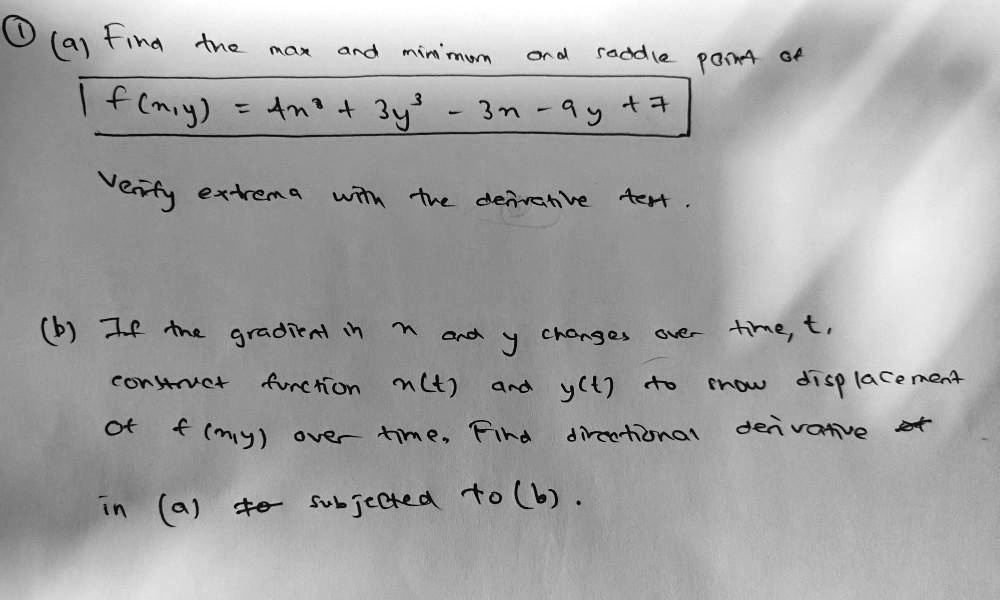 ① (a) Find the max and minimum and saddle point of
f(x,y) = 4x³ + 3y³ - 3x - 9y + 7
Verify extrema with the derivative test.
(b) If the gradient in x and y changes over time, t.
construct function x(t) and y(t) to show displacement
of f(x,y) over time. Find directional derivative
in (a) subjected to (b).